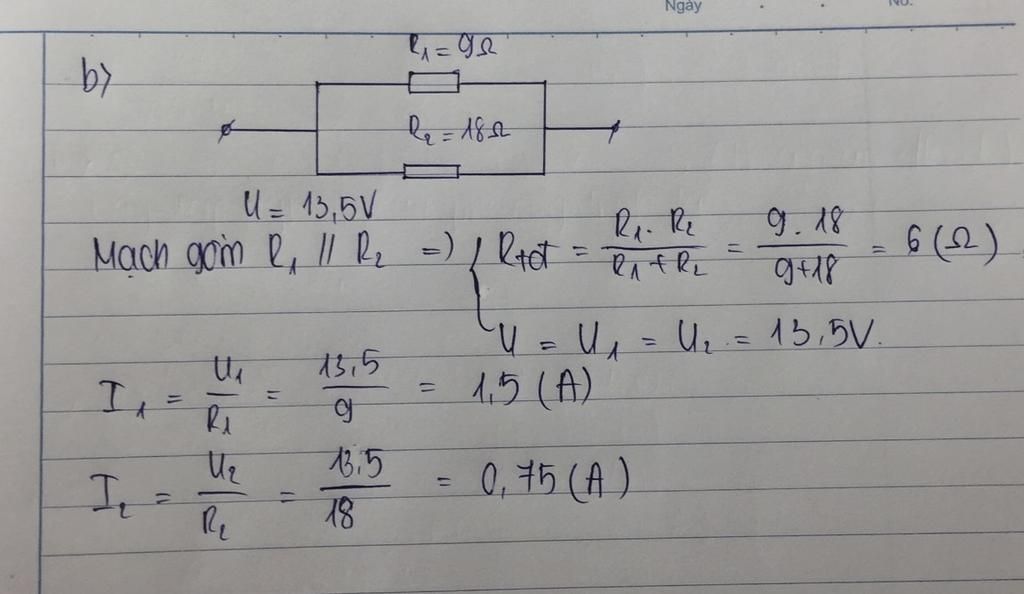 Ngày No.
R₁ = 9Ω
b)
R₂ = 18Ω
U = 13,5V
Mạch gồm R₁ // R₂ => { Rtđ = R₁ . R₂ / R₁ + R₂ = 9 . 18 / 9+18 = 6 (Ω)
U = U₁ = U₂ = 13,5V.
I₁ = U₁ / R₁ = 13,5 / 9 = 1,5 (A)
I₂ = U₂ / R₂ = 13,5 / 18 = 0,75 (A)